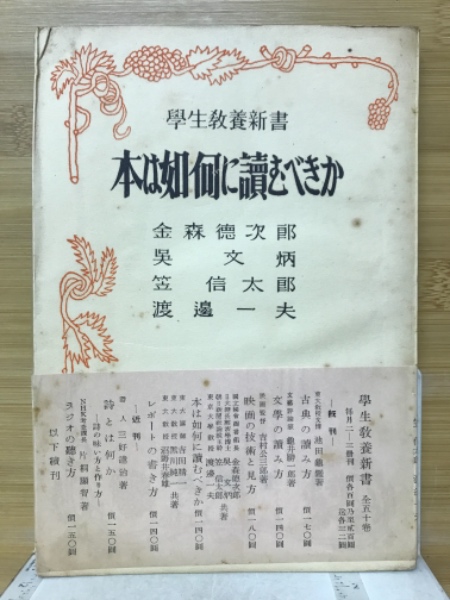 學生教養新書
本は如何に讀むべきか
金森德次郎
吳文炳
笠信太郎
渡邊一夫
學生教養新書 全五十卷
每月二—三冊刊
— 既刊 —
池田龜鑑著
古典の讀み方 價一七〇圓
文藝評論家 龜井勝一郎著
文學の讀み方 價一四〇圓
吉村公三郎著
映画の技術と見方 價一八〇圓
金森德次郎
吳文炳
笠信太郎
渡邊一夫
共著
本は如何に讀むべきか 價一四〇圓
吉田精一
黑川純一
共著
レポートの書き方 價一四〇圓
— 近刊 —
詩人 三好達治著
詩とは何か
—詩の味い方と作り方— 價一五〇圓
ラジオの聽き方 價一五〇圓
以下續刊